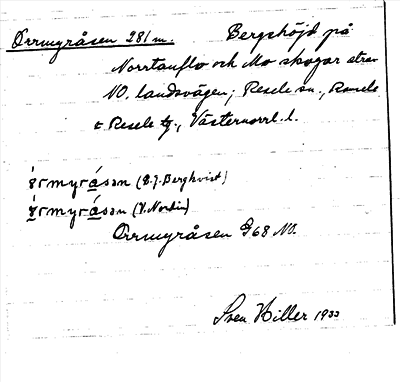 Örrmyråsen 281 m. Bergshöjd på
Norrtanflo och Mo skogar utan
NO. landsvägen; Resele sn., Ramsele
o Resele tg., Västernorrl. l.
ö́rmyrå̀sən (E.J. Bergkvist)
ý̀rmyrå̀sən (V. Nordin)
Örrmyråsen G68 NO.
Sven Hiller 1933